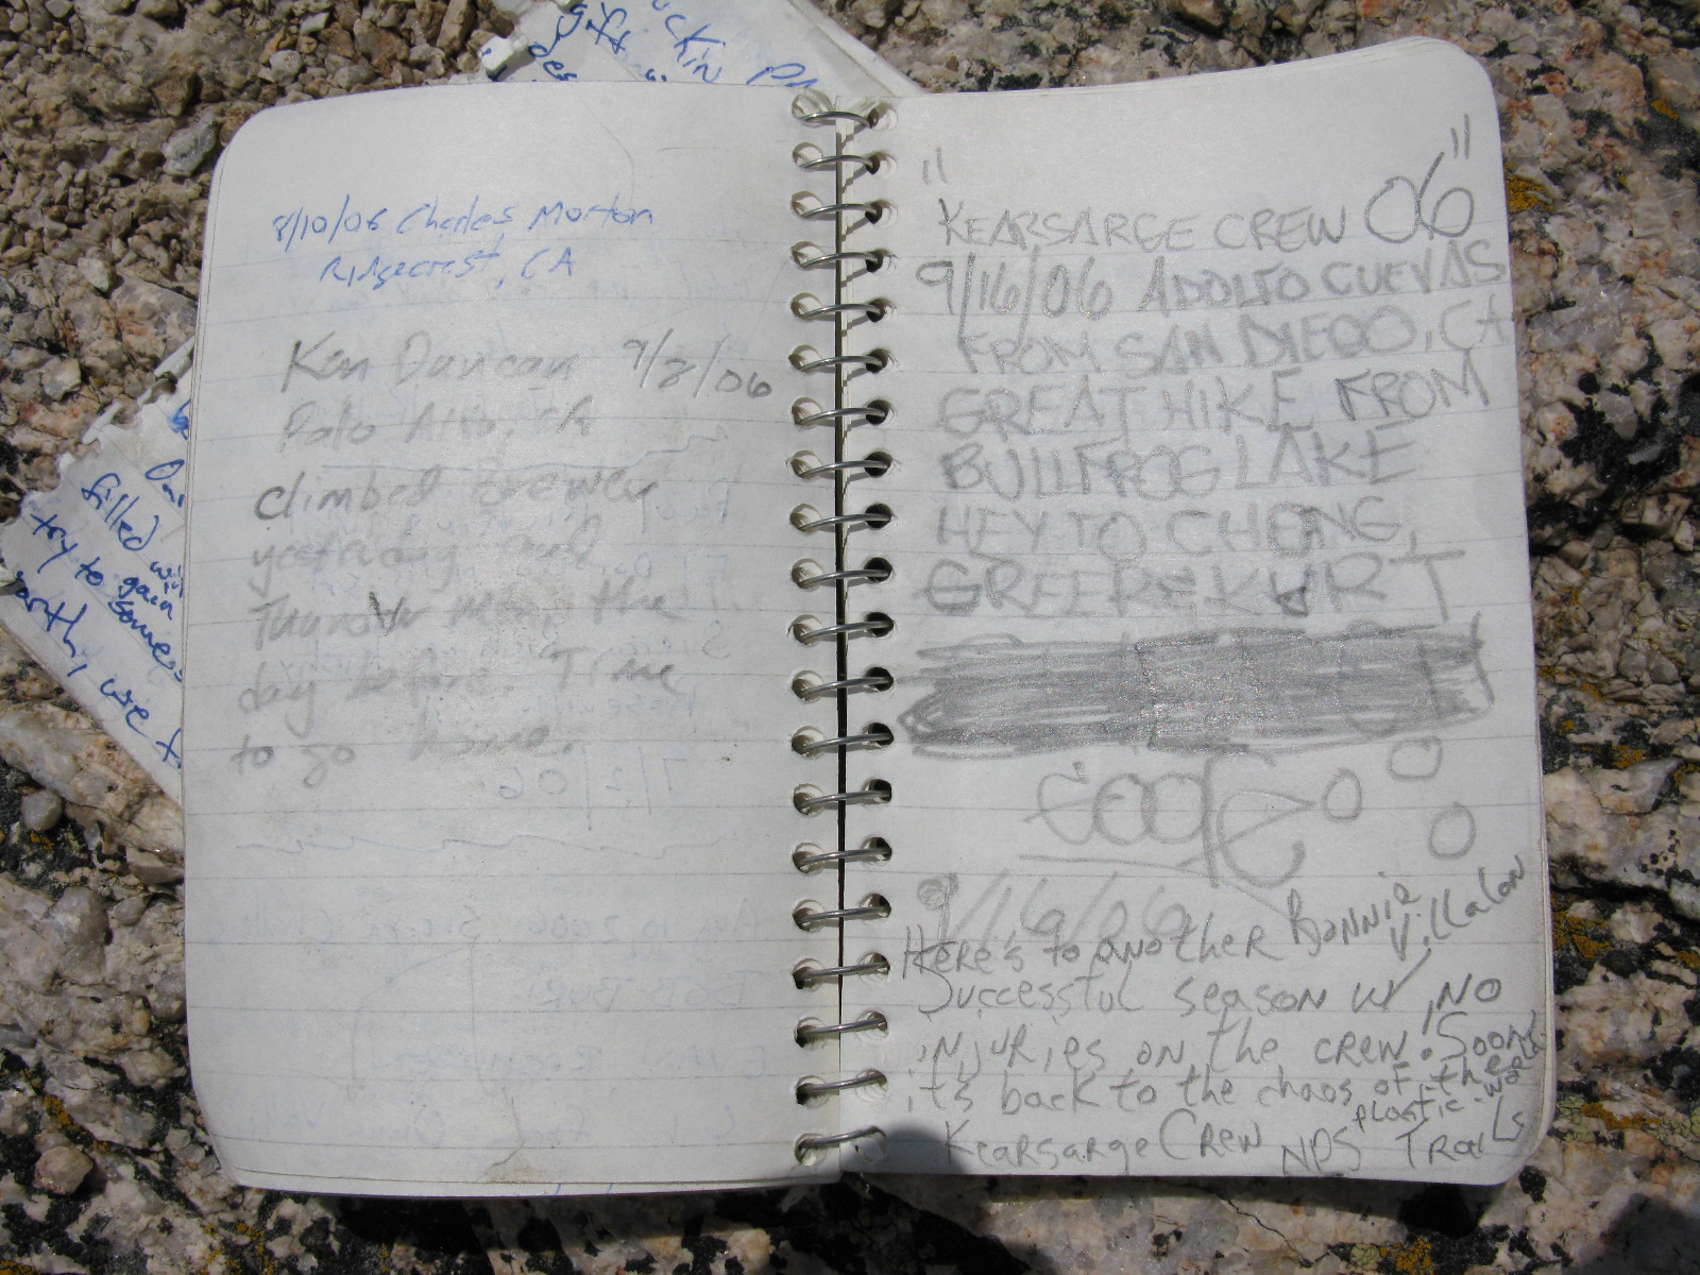 8/10/06 Charles Morton
Ridgecrest, CA
Ken Duncan 9/2/06
Palo Alto, CA
climbed Brewer
yesterday and
Thunder Mtn. the
day before. Time
to go home.
"KEARSARGE CREW 06"
9/16/06 ADOLFO CUEVAS
FROM SAN DIEGO, CA
GREAT HIKE FROM
BULLFROG LAKE
HEY TO
9/16/06 Bonnie Villalon
Here's to another
Successful season w/ NO
injuries on the crew. Soon
it's back to the chaos of the
plastic world.
Kearsarge Crew NPS Trails
gift
filled
try to gain
some
earth, we